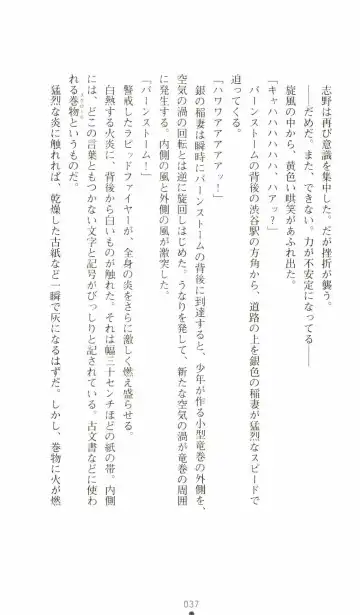 志野は再び意識を集中した。だが挫折が襲う。
――だめだ。また、できない。力が不安定になってる――
旋風の中から、黄色い哄笑があふれ出た。
「キャハハハハハ、ハアッ？」
バーンストームの背後の渋谷駅の方角から、道路の上を銀色の稲妻が猛烈なスピードで
迫ってくる。
「ハワワアアアアッ！」
銀の稲妻は瞬時にバーンストームの背後に到達すると、少年が作る小型竜巻の外側を、
空気の渦の回転とは逆に旋回しはじめた。うなりを発して、新たな空気の渦が竜巻の周囲
に発生する。内側の風と外側の風が激突した。
「バーンストーム！」
警戒したラピッドファイヤーが、全身の炎をさらに激しく燃え盛らせる。
白熱する火炎に、背後から白いものが触れた。それは幅三十センチほどの紙の帯。内側
には、どこの言葉ともつかない文字と記号がびっしりと記されている。古文書などに使わ
れる巻物というものだ。
猛烈な炎に触れれば、乾燥した古紙など一瞬で灰になるはずだ。しかし、巻物に火が燃
037